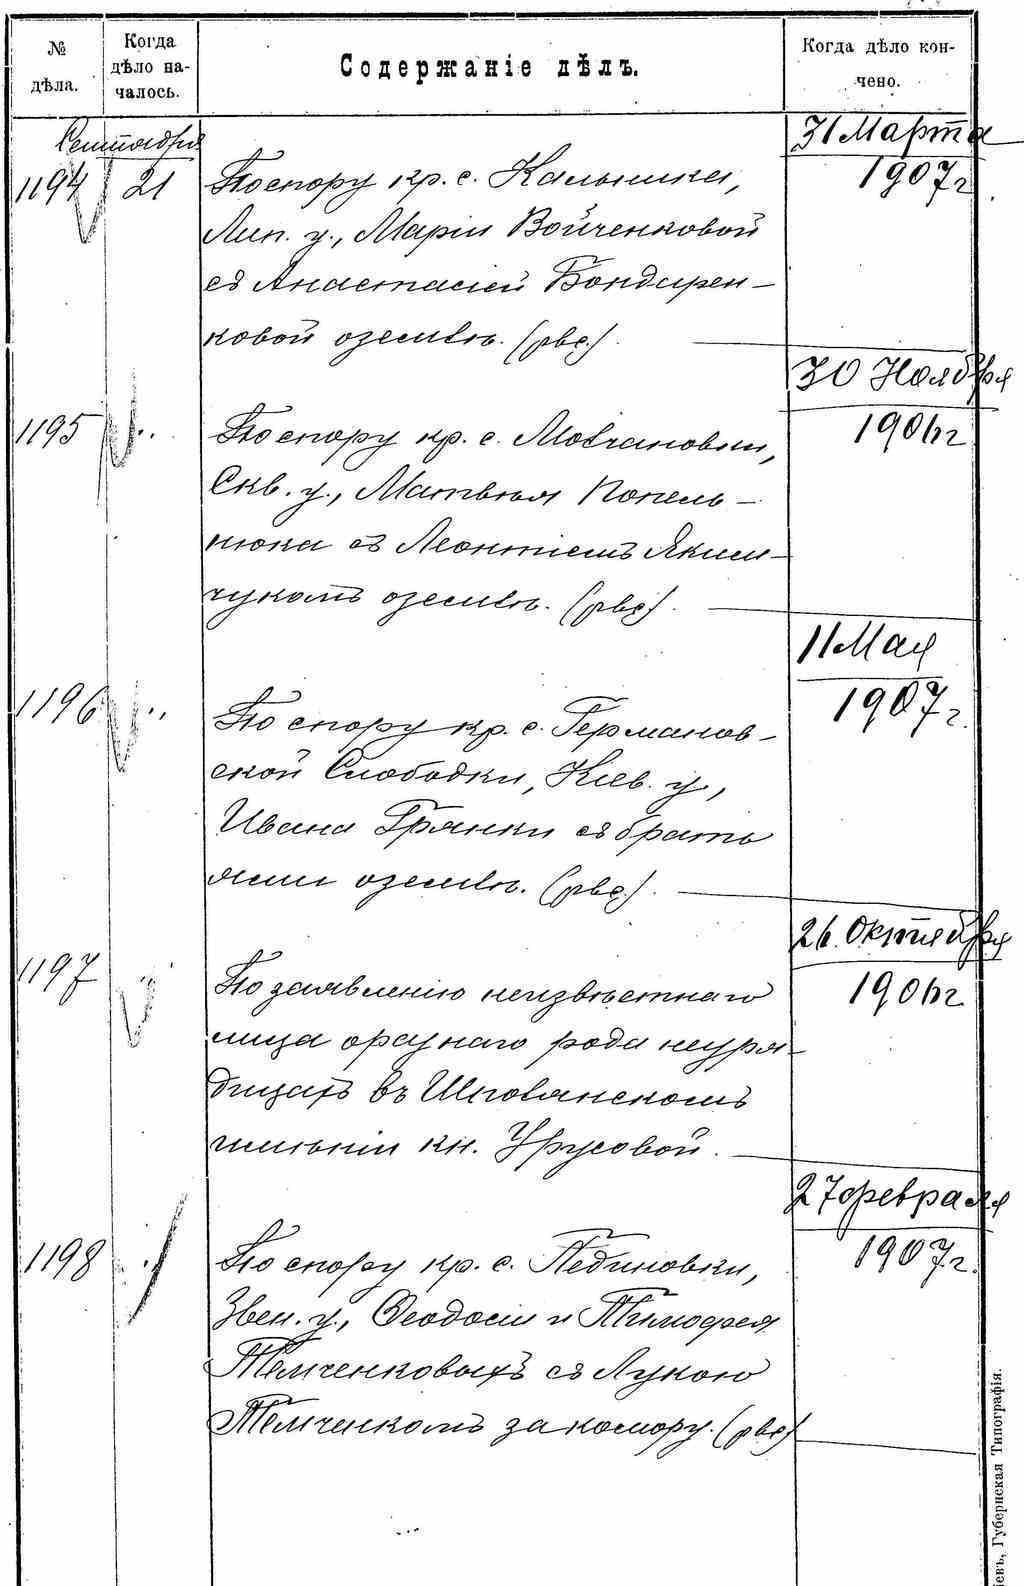 № дѣла.
Когда дѣло на-
чалось.
Содержаніе дѣлъ.
Когда дѣло кон-
чено.
Сентября
31 Марта
1907 г
1194 21 По спору кр. с. Кальника,
Лип. у., Маріи Войченковой
съ Анастасіей Бондарен-
ковой о землѣ. (рвс.).
30 Ноября
1906 г
1195 По спору кр. с. Мовчановки,
Скв. у., Матвѣя Копель-
нюка съ Леонтіемъ Яким-
чукомъ о землѣ. (рвс).
11 Мая
1907 г.
1196 По спору кр. с. Германов-
ской Слободки, Кіев. у.,
Ивана Грянки съ брать
ями о землѣ. (рвс.).
26 Октября
1906 г
1197 По заявленію неизвѣстнаго
лица о разнаго рода неуря-
дицахъ въ Шполянскомъ
имѣніи кн. Урусовой.
27 февраля
1907 г.
1198 По спору кр. с. Пединовки,
Звен. у., Ѳеодосіи и Тимофея
Темченковыхъ съ Лукою
Темченкомъ за комору. (рвс)
іевъ, Губернская Типографія.